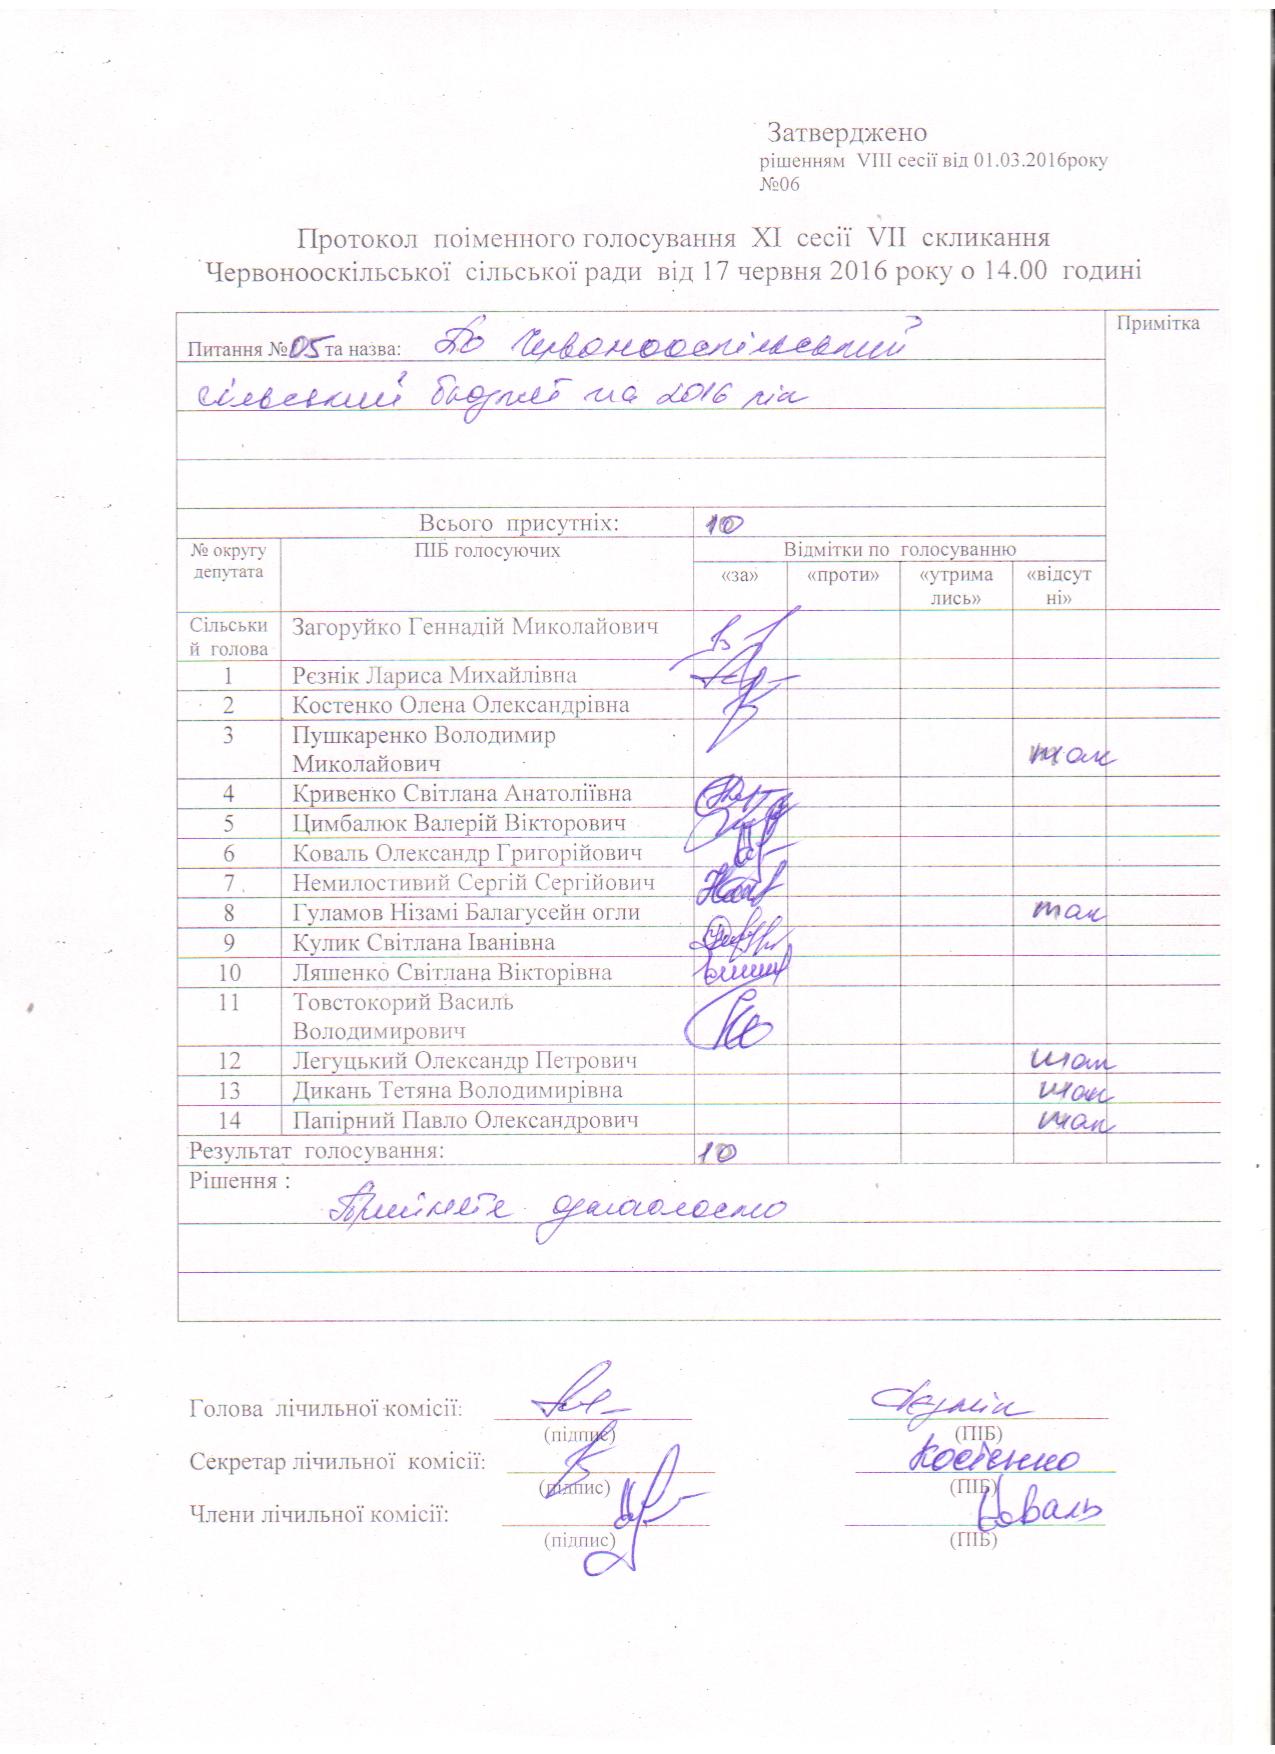 Затверджено
рішенням VIII сесії від 01.03.2016року
№06
Протокол поіменного голосування XI сесії VII скликання
Червонооскільської сільської ради від 17 червня 2016 року о 14.00 годині
Примітка
Питання №05 та назва: По Червонооскільський
сільський бюджет на 2016 рік
Всього присутніх: 10
№ округу депутата ПІБ голосуючих Відмітки по голосуванню
«за» «проти» «утрима лись» «відсут ні»
Сільськи й голова Загоруйко Геннадій Миколайович
1 Рєзнік Лариса Михайлівна
2 Костенко Олена Олександрівна
3 Пушкаренко Володимир
Миколайович так
4 Кривенко Світлана Анатоліївна
5 Цимбалюк Валерій Вікторович
6 Коваль Олександр Григорійович
7 Немилостивий Сергій Сергійович
8 Гуламов Нізамі Балагусейн огли так
9 Кулик Світлана Іванівна
10 Ляшенко Світлана Вікторівна
11 Товстокорий Василь
Володимирович
12 Легуцький Олександр Петрович так
13 Дикань Тетяна Володимирівна так
14 Папірний Павло Олександрович так
Результат голосування: 10
Рішення :
Прийнято одноголосно
Голова лічильної комісії: Рєзнік
(підпис) (ПІБ)
Секретар лічильної комісії: Костенко
(підпис) (ПІБ)
Члени лічильної комісії: Коваль
(підпис) (ПІБ)